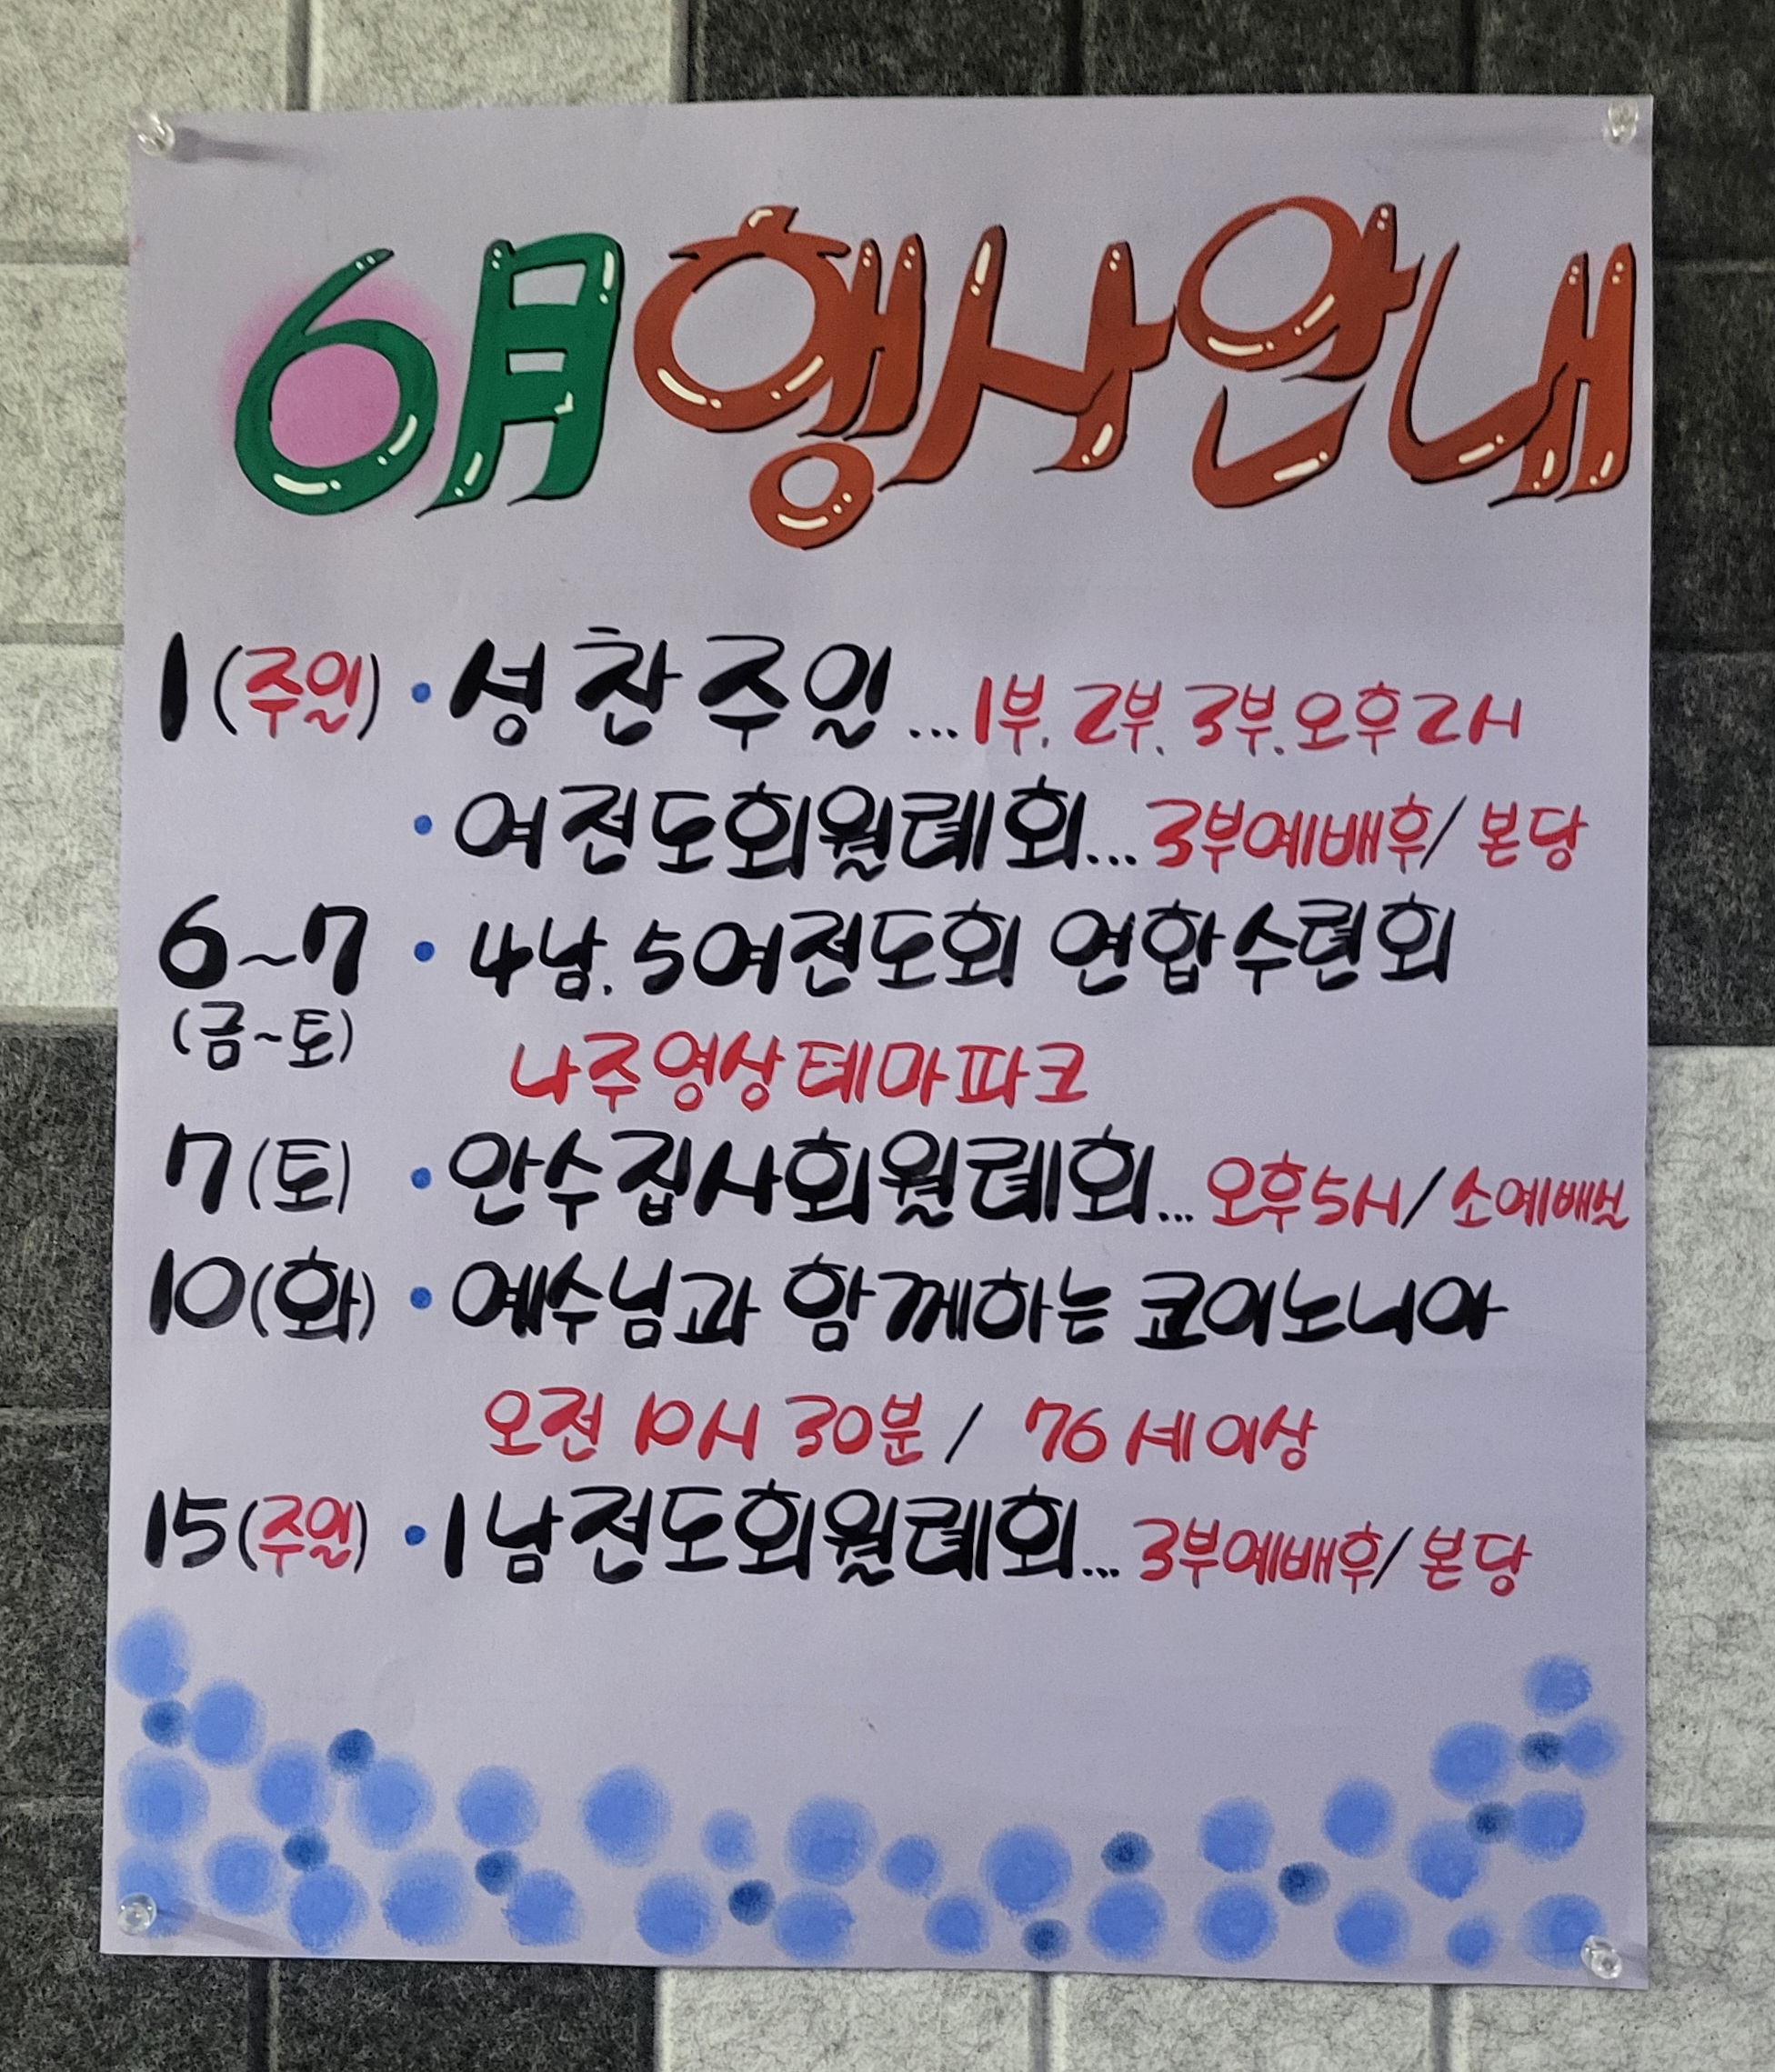 6月 행사안내
1(주일) · 성찬주일...1부. 2부. 3부. 오후2시
· 여전도회월례회...3부예배후/ 본당
6~7 · 4남. 5여전도회 연합수련회
(금~토)
나주영상테마파크
7(토) · 안수집사회월례회...오후5시/소예배실
10(화) · 예수님과 함께하는 코이노니아
오전 10시 30분/ 76세이상
15(주일) · 1남전도회월례회...3부예배후/본당